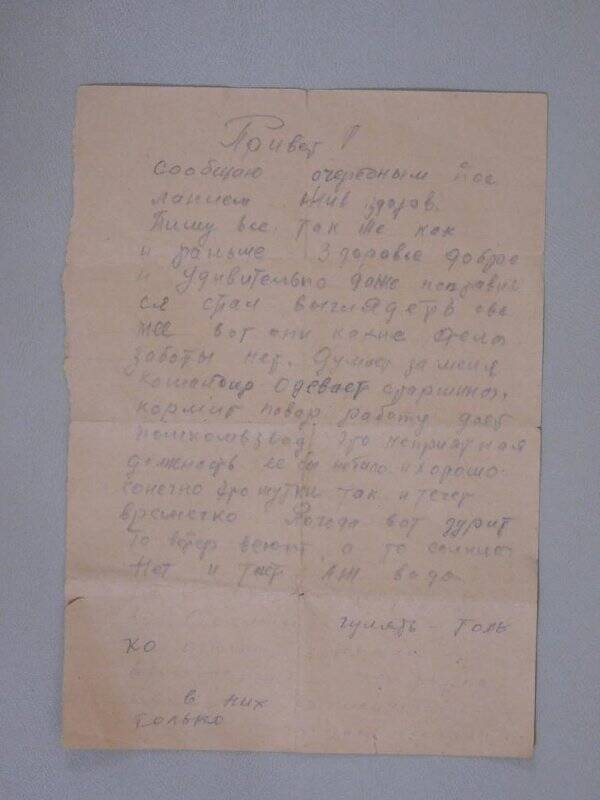 Привет!
Сообщаю очередным пос
ланием Жив здоров.
Пишу все так же как
и раньше Здоровье доброе
и Удивительно даже поправил
ся стал выглядеть све
жее вот они какие дела
заботы нет. Думает за меня
командир Одевает старшина,
кормит повар работу дает
помкомвзвод Это неприятная
должность ее бы небыло и хорошо
конечно это шутки так и течет
времечко Погода вот дурит
То ветер веют а то солнце
Нет и тает Аж вода
гулять толь
ко
в них
только